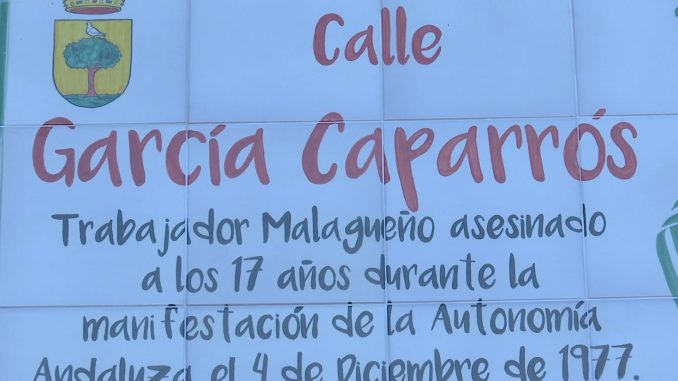 Calle
García Caparrós
Trabajador Malagueño asesinado
a los 17 años durante la
manifestación de la Autonomía
Andaluza el 4 de Diciembre de 1977.